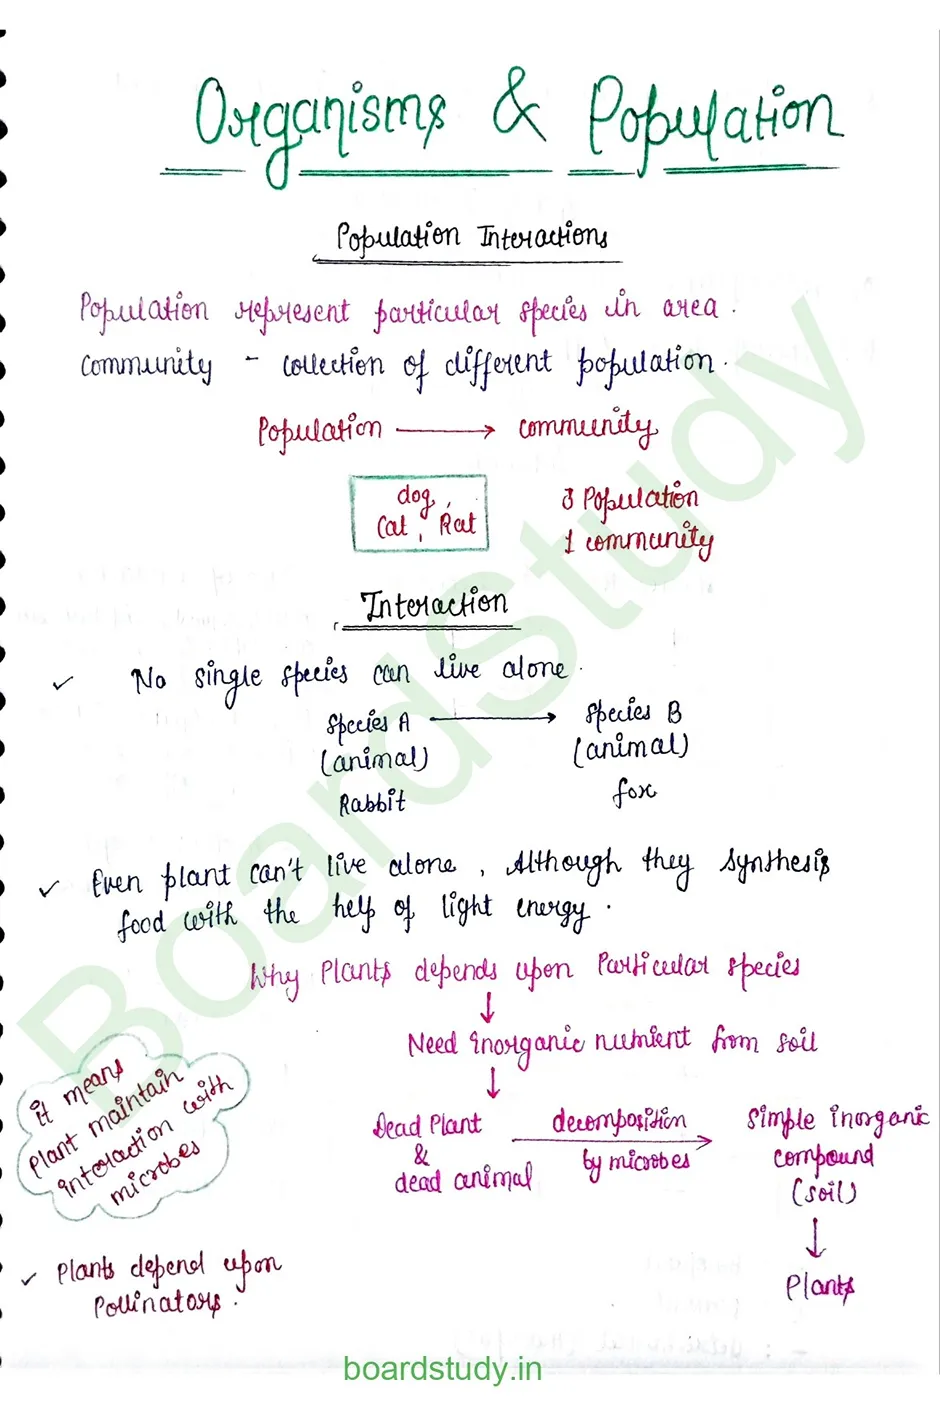 Organisms & Population
Population Interactions
Population represent particular species in area .
Community - collection of different population .
Population → community
dog ,
Cat , Rat
3 Population
1 community
Interaction
✓ No single species can live alone .
Species A → Species B
(animal) (animal)
Rabbit fox
✓ Even plant can't live alone , Although they synthesis
food with the help of light energy .
Why Plants depends upon Particular species
↓
Need inorganic nutrient from soil
↓
Dead Plant
&
dead animal
decomposition
by microbes
→
Simple inorganic
compound
(soil)
↓
Plants
it means
plant maintain
interaction with
microbes
✓ Plants depend upon
Pollinators .
BoardStudy
boardstudy.in